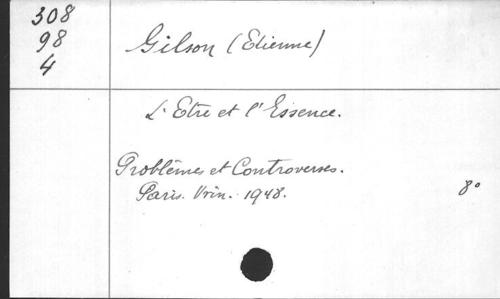 308
98
4
Gilson (Etienne)
L'Etre et l'Essence.
Problèmes et Controverses.
Paris. Vrin. 1948.
8°